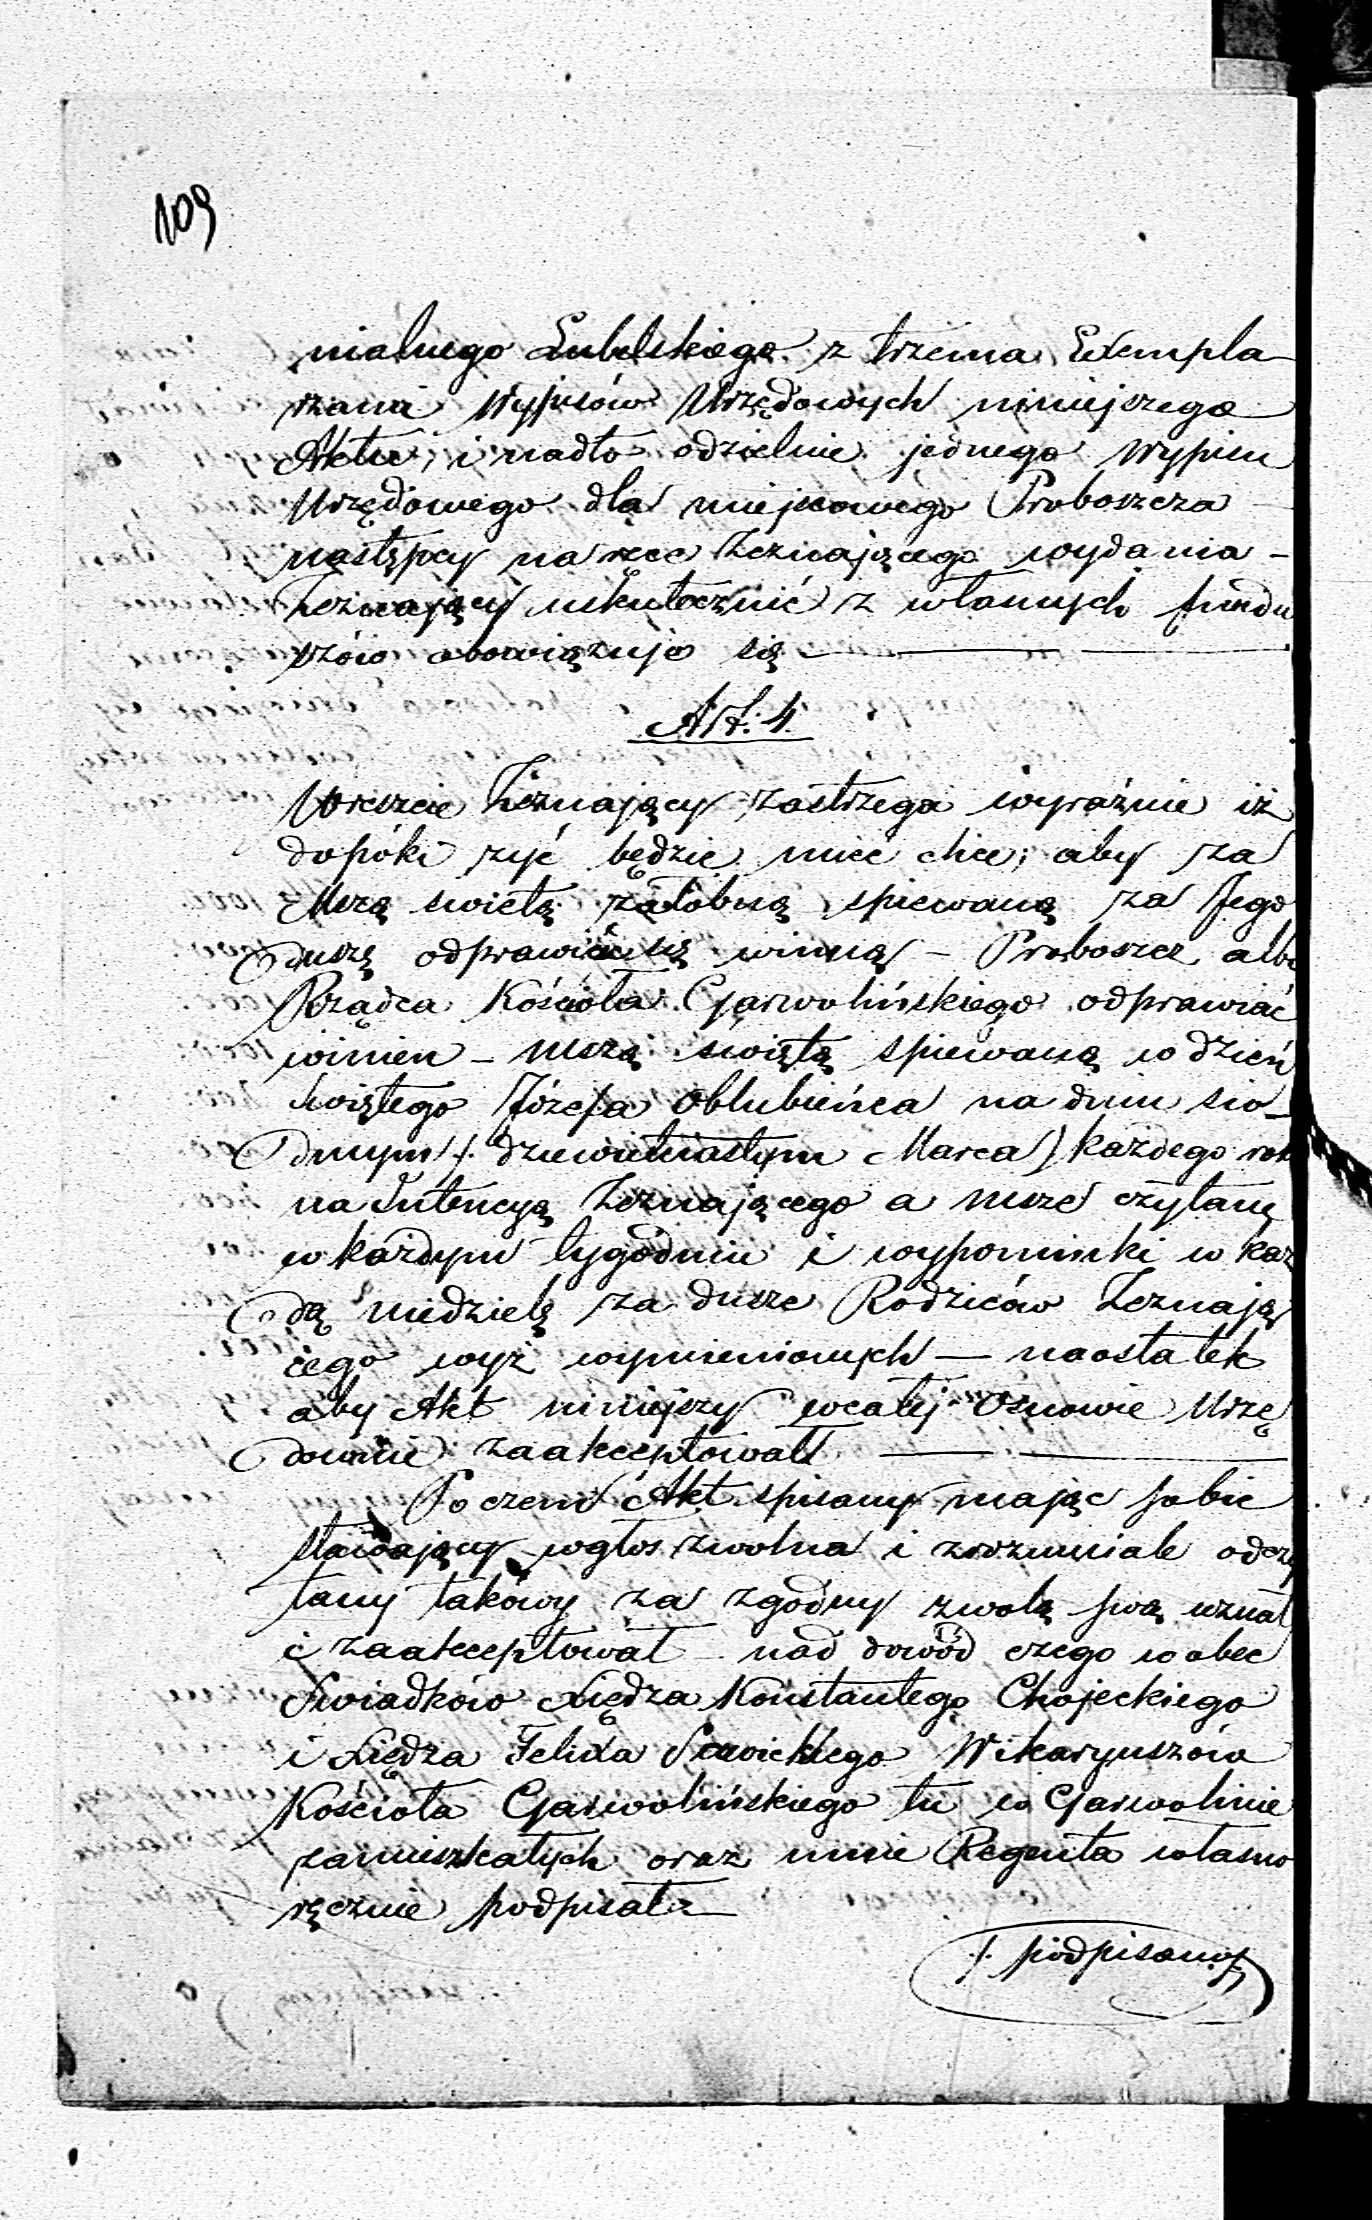 109
nialnego Lubelskiego z trzema Exempla
rzami Wypisów Urzędowych niniejszego
Aktu, i nadto odzielnie jednego Wypisu
Urzędowego dla miejscowego Proboszcza
następcy na ręce Zeznającego wydania –
Zeznający uskutecznić z własnych fundu
szów obowiązuje się
Art: 4.
Wreszcie Zeznający zastrzega wyraźnie iż
dopóki żyć będzie mieć chce; aby za
Mszą swietą żałobną spiewaną za Jego
Duszę odprawiać się winną – Proboszcz albo
Rządca Kościoła Garwolińskiego odprawiać
winien – mszą świętą spiewaną w dzień
Swiętego Józefa Oblubieńca na dniu sio–
Dmym /. dziewietnastym Marca) każdego rok
na Intencyą Zeznającego a msze czytaną
w każdym tygodniu i wypominki w każ
Dą niedzielę za dusze Rodziców Zeznają
cego wyż wymienionych – naostatek
aby Akt niniejszy wcałej Osnowie Urzę
Downie zaakceptował
Poczem Akt spisany mając sobie
stawający wgłos zwolna i zrozumiale odczy
tany takowy za zgodny zwolą swą uznał
i zaakceptował – nad dowód czego wobec
Swiadków Xiędza Konstantego Chojeckiego
i Xiędza Felixa Sawickiego Wikaryuszów
Kościoła Garwolińskiego tu w Garwolinie
zamieszkałych oraz mnie Regenta własno
ręcznie podpisał
/. podpisano /